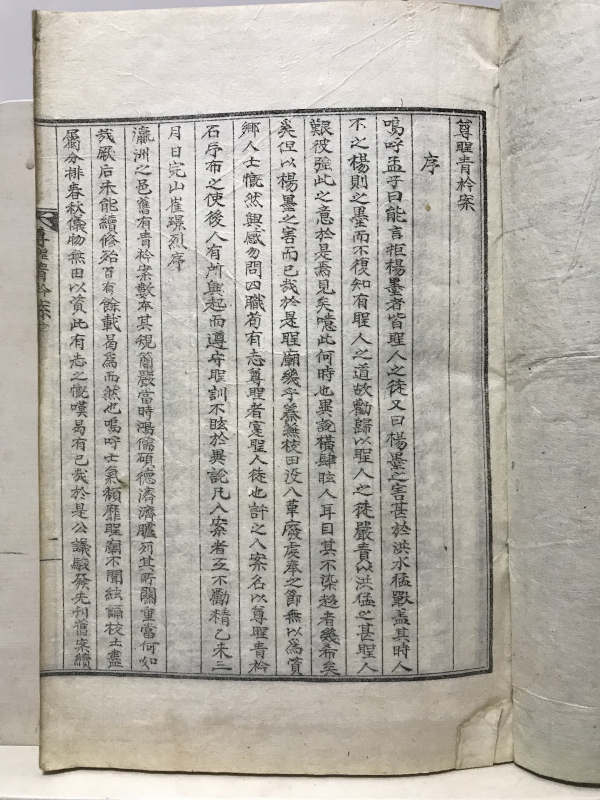 尊聖青衿案
序
嗚呼孟子曰能言拒楊墨者皆聖人之徒又曰楊墨之害甚於洪水猛獸盖其時人
不之楊則之墨而不復知有聖人之道故勸歸以聖人之徒嚴責以洪猛之甚聖人
艱彼強此之意於是焉見矣噫此何時也異說橫肆眩人耳目其不染趍者幾希矣
奚但以楊墨之害而已哉於是聖廟幾乎蓁無校田没入革廢虔奉之節無以爲資
鄉人士慨然興感勿問四職苟有志尊聖者寔聖人徒也許之入案名以尊聖青衿
石序布之使後人有所興起而遵守聖訓不眩於異說凡入案者互不勸精乙未三
月日完山崔璟烈序
瀛洲之邑舊有青衿案數本其規簡嚴當時鴻儒碩德濟濟臚列其所關重當何如
哉厥后未能續修殆百有餘載曷爲而然也嗚呼士氣頹靡聖廟不聞絃誦校土盡
屬分排春秋儀物無由以資此有志之慨嘆曷有已哉於是公議駿發先刊舊案續
尊聖青衿案